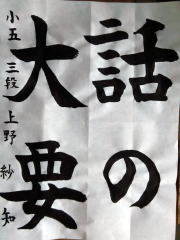 話の
大要
小五 三段 上野紗知